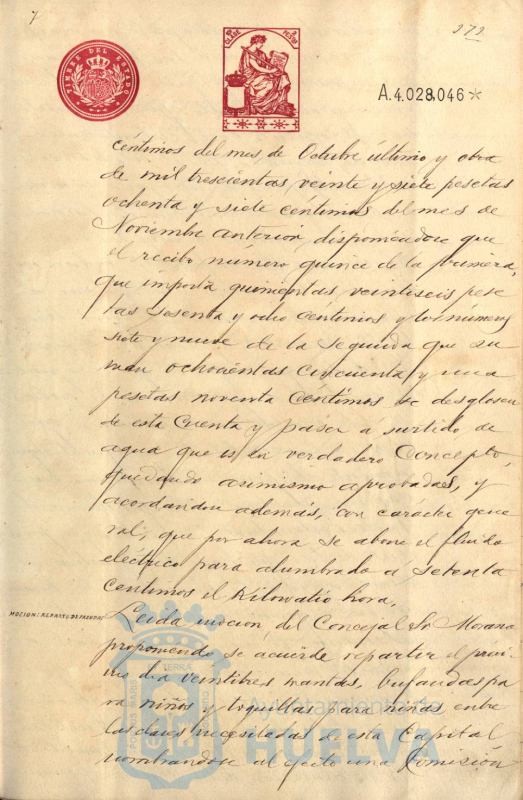 7
272
TIMBRE DEL ESTADO
CLASE
PESETAS
A.4.028,046*
céntimos del mes, de Octubre último y otra
de mil trescientas veinte y siete pesetas
ochenta y siete céntimos del mes de
Noviembre anterior, disponiendose que
el recibo número quince de la primera,
que importa quinientas veintiseis pese
tas sesenta y ocho centimos y los numeros
siete y nueve de la segunda que su
man ochocientas cincuenta y una
pesetas noventa céntimos se desglosen
de esta Cuenta y pasen a surtido de
agua que es su verdadero concepto,
quedando asimismo aprobadas, y
acordandose además, con carácter gene
ral, que por ahora se abone el fluido
eléctrico para alumbrado a setenta
centimos el Kilowatio hora.
MOCION: REPARTO DE PRENDAS
Leida mocion del Concejal Sr Morano
proponiendo se acuerde repartir el próxi
mo dia veintitres mantas, bufandas pa
ra niños y toquillas para niñas entre
las clases necesitadas de esta Capital
nombrandose al efecto una Comisión
Ayuntamiento de
HUELVA